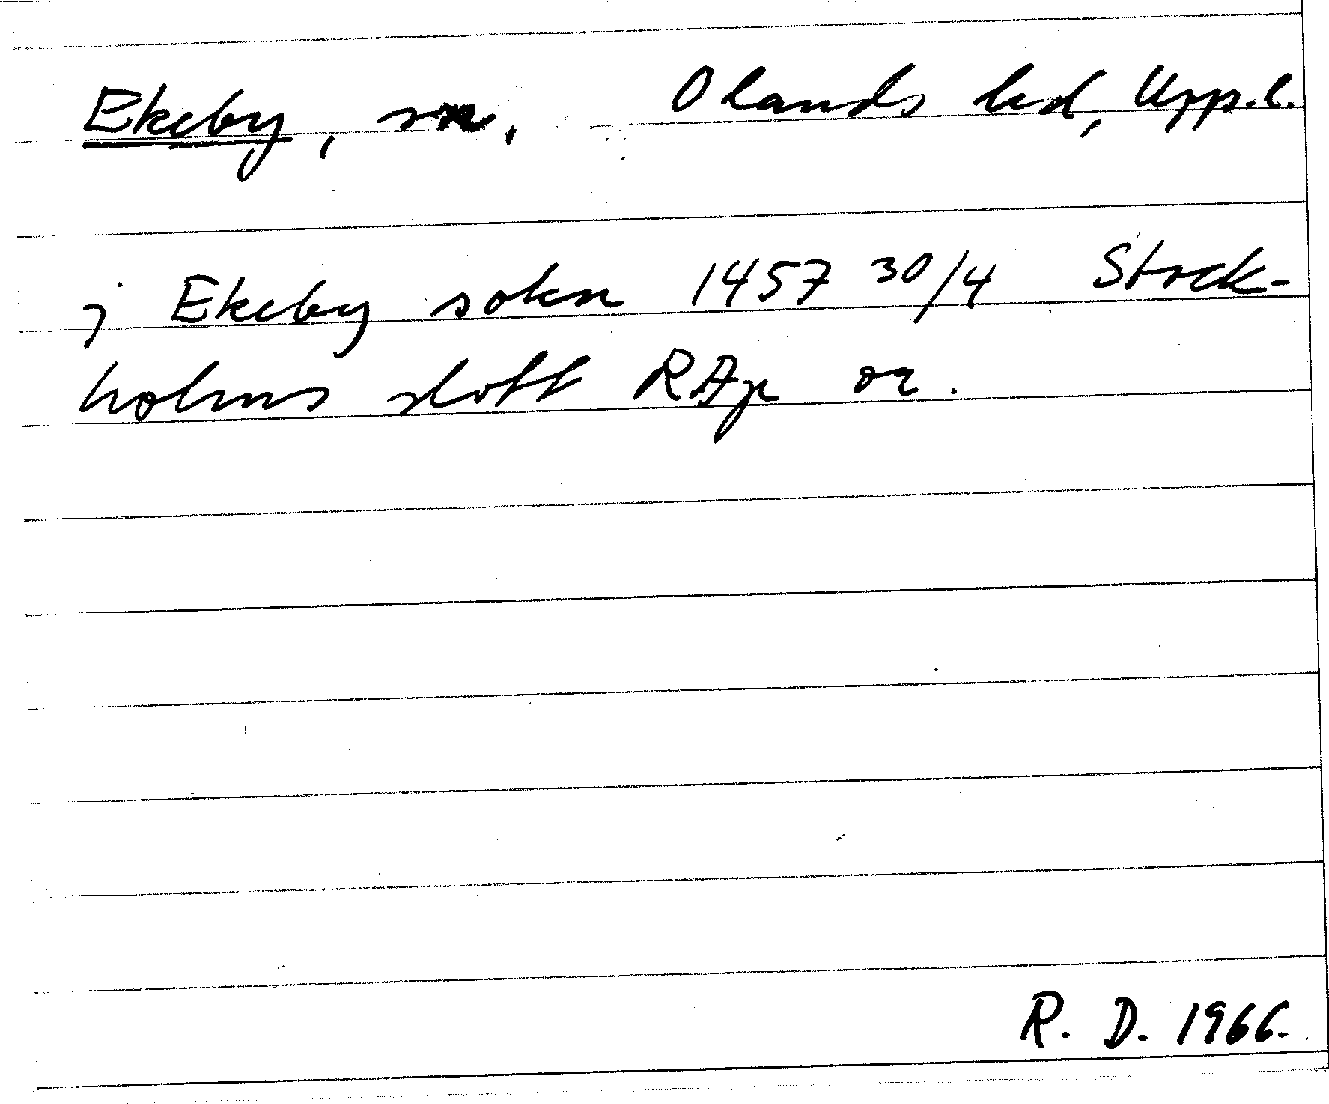 Ekeby, sn. Olands hd, Uppl.
j Ekeby sokn 1457 30/4 Stock-
holms slott RAp or.
R. D. 1966.